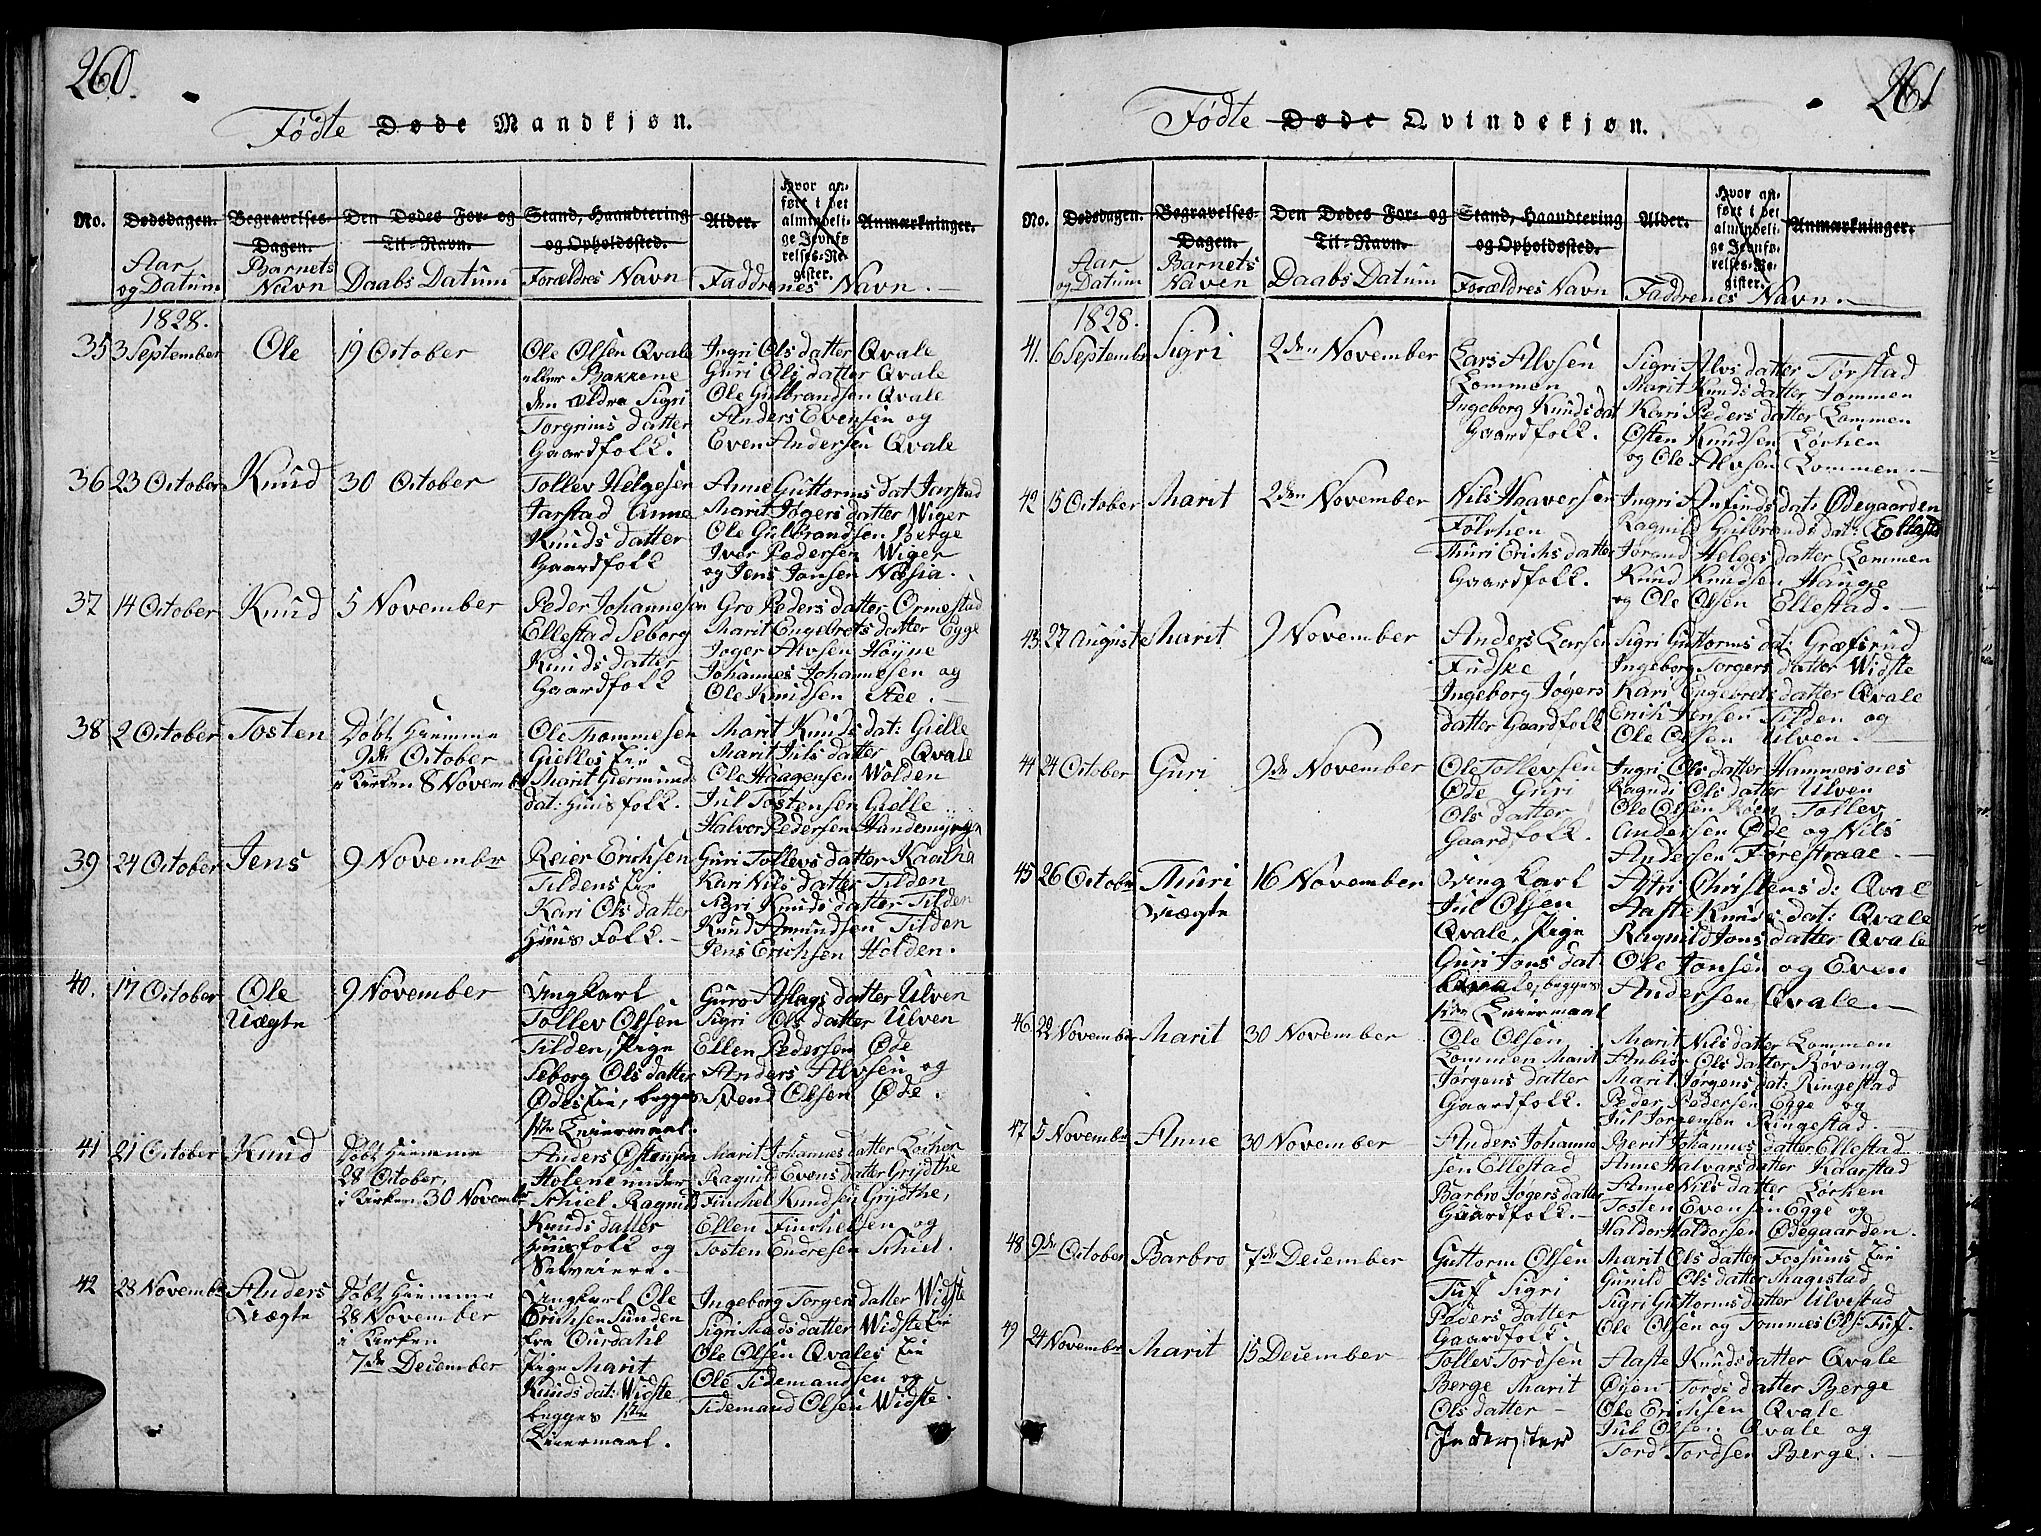 260.
Fødte Døde Mandkjøn.
No.
Dødsdagen.
Begravelses-
Dagen.
Den Dødes For- og
Til-Navn.
Stand, Haandtering
og Opholdssted.
Alder.
Hvor an-
ført i det
almindeli-
ge Jevnfø-
relses-Re-
gister.
Anmærkninger.
Aar
og Datum
Barnets
Navn
Daabs Datum
Forældres Navn
Faddrenes Navn.
1828.
35 3 September Ole 19 October
Ole Olsen Qvale
eller Bakkene
den Ældre Sigri
Torgrims datter
Gaardfolk.
Ingri Ols datter Qvale
Guri Ols datter Qvale
Ole Gulbrandsen Qvale
Anders Evensen og
Even Andersen Qvale
36 23 October Knud 30 October
Tollev Helgesen
Jarstad Anne
Knuds datter
Gaardfolk
Anne Guttorms dat Jarstad
Marit Jøgers datter Wiger
Ole Gulbrandsen Berge
Iver Pedersen Wiger
og Jens Jansen Næsia.
37 14 October Knud 5 November
Peder Johannesen
Ellestad Seborg
Knuds datter
Gaardfolk
Gro Peders datter Ormestad
Marit Engebrets datter Egge
Joger Alvsen Høyne
Johannes Johannesen og
Ole Knudsen Stee.
38 2 October Tosten
Døbt Hiemme
9de October
i Kirken 8 Novemb
Ole Thommesen
Gielles Eie
Marit Giermunds
dat: Huusfolk.
Marit Knuds dat: Gielle
Marit Juls datter Qvale
Ole Haagensen Wolden
Jul Tostensen Gielle
Halvor Pedersen Handemyren
39 24 October Jens 9 Novembr
Reier Erichsen
Tildens Eie
Kari Ols datter
Huus Folk.
Guri Tollevs datter Kaatha
Kari Nils datter Tilden
Sigri Knuds datter Tilden
Knud Amundsen Tilden
Jens Erichsen Holden.
40. 17 October Ole
Uægte
9 November
Ungkarl
Tollev Olsen
Tilden, Pige
Seborg Ols datter
Ødes Eie, begges
1ste Leiermaal.
Guro Aslags datter Ulven
Sigri Ols datter Ulven
Ellen Pedersen Øde
Anders Alvsen og
Svend Olsen Øde.
41 21 October Knud
Døbt Hiemme
28 October,
i Kirken 30 Novembr
Anders Østensen
Holene under
Schiel Ragnild
Knuds datter
Huusfolk og
Selveiere.
Marit Johannes datter Lochen
Ragnild Evens datter Grydthe
Finchel Knudsen Grydthe,
Ellen Finchelsen og
Tosten Endresen Schiel.
42 28 Novembr Anders
Uægte
Døbt Hiemme
28 November
i Kirken
7de December
Ungkarl Ole
Erichsen Sunden
fra Ourdahl
Pige Marit
Knuds dat: Widste
begges 1ste
Leiermaal.
Ingeborg Torgers datter Widste
Sigri Mads datter Widste Eie
Ole Olsen Qvales Eie
Ole Tidemandsen og
Tidemand Olsen Widste
261
Fødte Døde Qvindekjøn.
No.
Dødsdagen.
Begravelses-
Dagen.
Den Dødes For- og
Til-Navn.
Stand, Haandtering
og Opholdssted.
Alder.
Hvor an-
ført i det
almindeli-
ge Jevnfø-
relses-Re-
gister.
Anmærkninger.
Aar
og Datum
Barnets
Naven
Daabs Datum
Forældres Navn
Faddrenes Navn.
1828.
41. 6 Septembr Sigri 2den November
Lars Alvsen
Lommen
Ingeborg Knuds dat
Gaardfolk.
Sigri Alvs datter Torstad
Marit Knuds datter Lommen
Kari Peders datter Lommen
Østen Knudsen Lørhen
og Ole Alvsen Lommen.
42 15 October Marit 2den November
Nils Haaversen
Folchen
Thuri Erichs datter
Gaardfolk.
Ingri Anfinds dat: Ødegaarden
Ragnild Gulbrands dat: Ellestd
Jorand Helges datter Lommen
Knud Knudsen Hauge
og Ole Olsen Ellestad.
43 27 Auguste Marit 9 November
Anders Larsen
Fudske
Ingeborg Jøgers
datter Gaardfolk
Sigri Guttorms dat: Græfsrud
Ingeborg Torgers datter Widste
Kari Engevrets datter Qvale
Erich Jensen Tilden og
Ole Olsen Ulven.
44 24 October Guri 9de November
Ole Tollevsen
Øde Guri
Ols datter
Gaardfolk.
Ingri Ols datter Hammersnes
Ragndi Ols datter Ulven
Ole Olsen Tollev
Andersen Øde og Nils
Andersen Førestraae.
45 26 Octobr Thuri
Uægte
16 November
Ungkarl
Jul Olsen
Qvale, Pige
Guri Jons dat
begges
1ste Leiermaal
Astri Christens d: Qvale
Aaste Knuds dat: Qvale
Ragnild Jons datter Qvale
Ole Jonsen og Even
Andersen Qvale.
46 22 November Marit 30 November
Ole Olsen
Lommen Marit
Jørgens datter
Gaardfolk.
Marit Nils datter Lommen
Anbiør Ols datter Røvang
Marit Jørgens dat: Ringestad
Peder Pedersen Egge og
Jul Jorgensen Ringestad.
47 5 Novembr Anne 30 November
Anders Johanne
sen Ellestad
Barbro Jøgers datter
Gaardfolk.
Berit Johannes datter Ellestad
Anne Halvars datter Kaarstad
Anne Nils datter Lørhen
Tosten Evensen Egge og
Haldor Haldorsen Ødegaarden.
48 9de October Barbro 7de December
Guttorm Olsen
Tuf Sigri
Peders datter
Gaardfolk.
Marit Ols datter Fossums Eie
Gunild Ols datter Magistad
Sigri Guttorms datter Ulvestad
Ole Olsen og Tommes Olsn Tuf.
49 24 Novembr Marit 15 December
Tollev Tordsen
Berge Marit
Ols datter
Inderster
Aaste Knuds datter Qvale
Øyen Tords datter Berge
Ole Erichsen Qvale
Jul Olsen Qvale og
Tord Tordsen Berge.